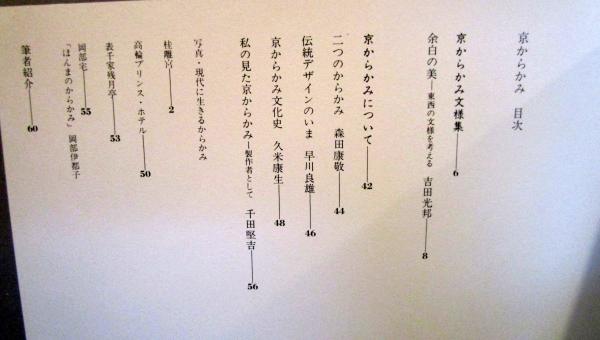 京からかみ 目次
京からかみ文様集――6
余白の美―東西の文様を考える 吉田光邦――8
京からかみについて――42
二つのからかみ 森田康敬――44
伝統デザインのいま 早川良雄――46
京からかみ文化史 久米康生――48
私の見た京からかみ―製作者として 千田堅吉――56
写真・現代に生きるからかみ
桂離宮――2
高輪プリンス・ホテル――50
表千家残月亭――53
岡部宅――55
「ほんまのからかみ」 岡部伊都子
筆者紹介――60